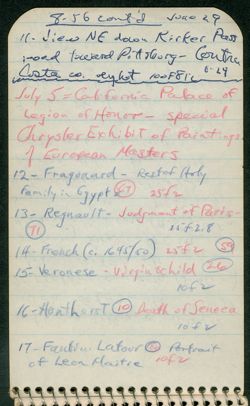 8-56 cont'd June 29
11- View NE down Kirker Pass
road toward Pittsburg - Contra
Costa co. eight 100 f8
6-29
July 5 = California Palace of
Legion of Honor - special
Chrysler Exhibit of Paintings
of European Masters
12 - Fragonard - Rest of Holy
Family in Egypt 25 f2
13 - Regnault - Judgment of Paris -
71 25 f2.8
14 - French (c. 1645/50) 25 f2 59
15 - Veronese - Virgin & child
10 f2
16 - Honthorst 10 Death of Seneca
10 f2
17 - Fantin-Latour Portrait
of Leon Maitre 10 f2